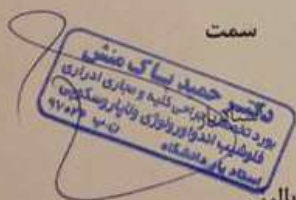 سمت
دکتر حمید پاک منش
بورد تخصصی جراحی کلیه و مجاری ادراری
فلوشیپ اندواورولوژی ولاپاروسکوپی
استاد یار دانشگاه
ن.پ